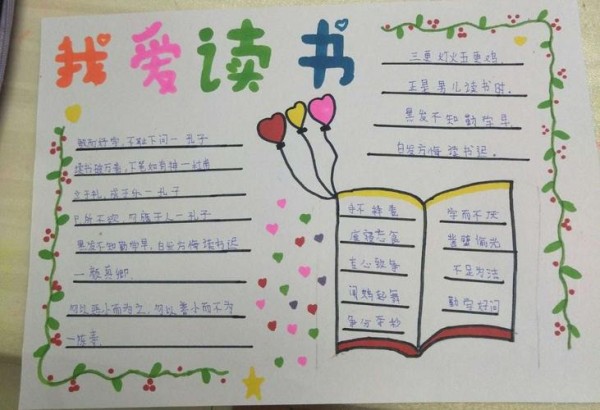 我爱读书
敏而好学,不耻下问一孔子
读书破万卷,下笔如有神一杜甫
己所不欲,勿施于人一孔子
黑发不知勤学早,白发方悔读书迟
一颜真卿
勿以恶小而为之,勿以善小而不为
一陈寿
三更灯火五更鸡
正是男儿读书时.
黑发不知勤学早
白发方悔读书迟.
废寝忘食
专心致争
闻鸡起舞
争分夺秒
学而不厌
凿壁偷光
不足为法
勤学好问